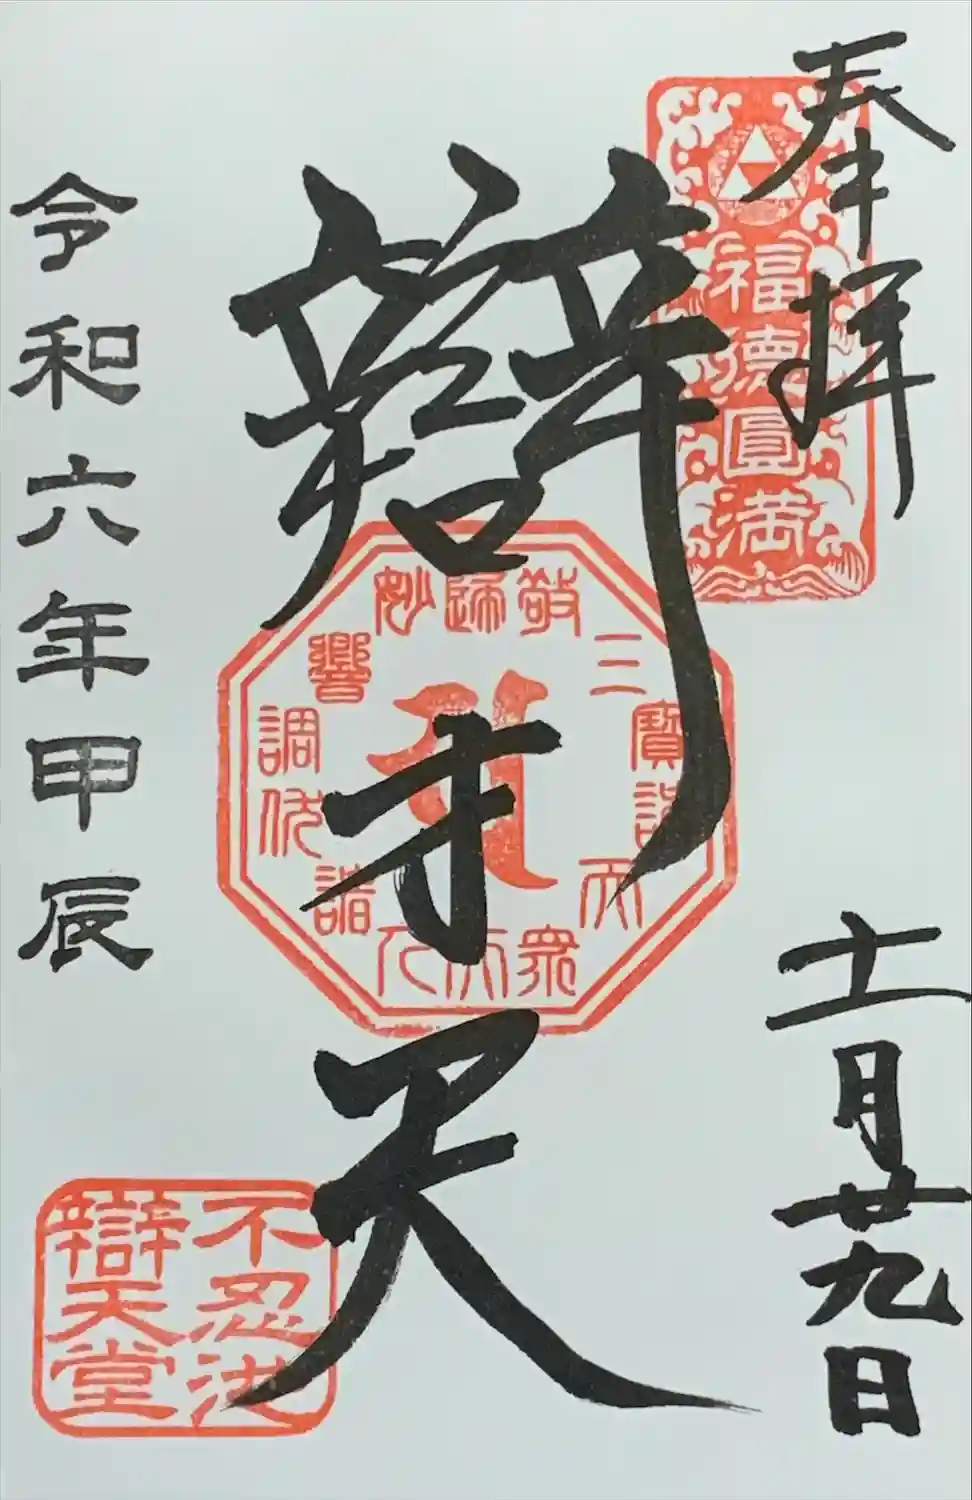 奉拝
福徳圓満
十一月廿九日
辯才天
敬歸妙
三寶
衆
響調
令和六年甲辰
不忍池
辯天堂